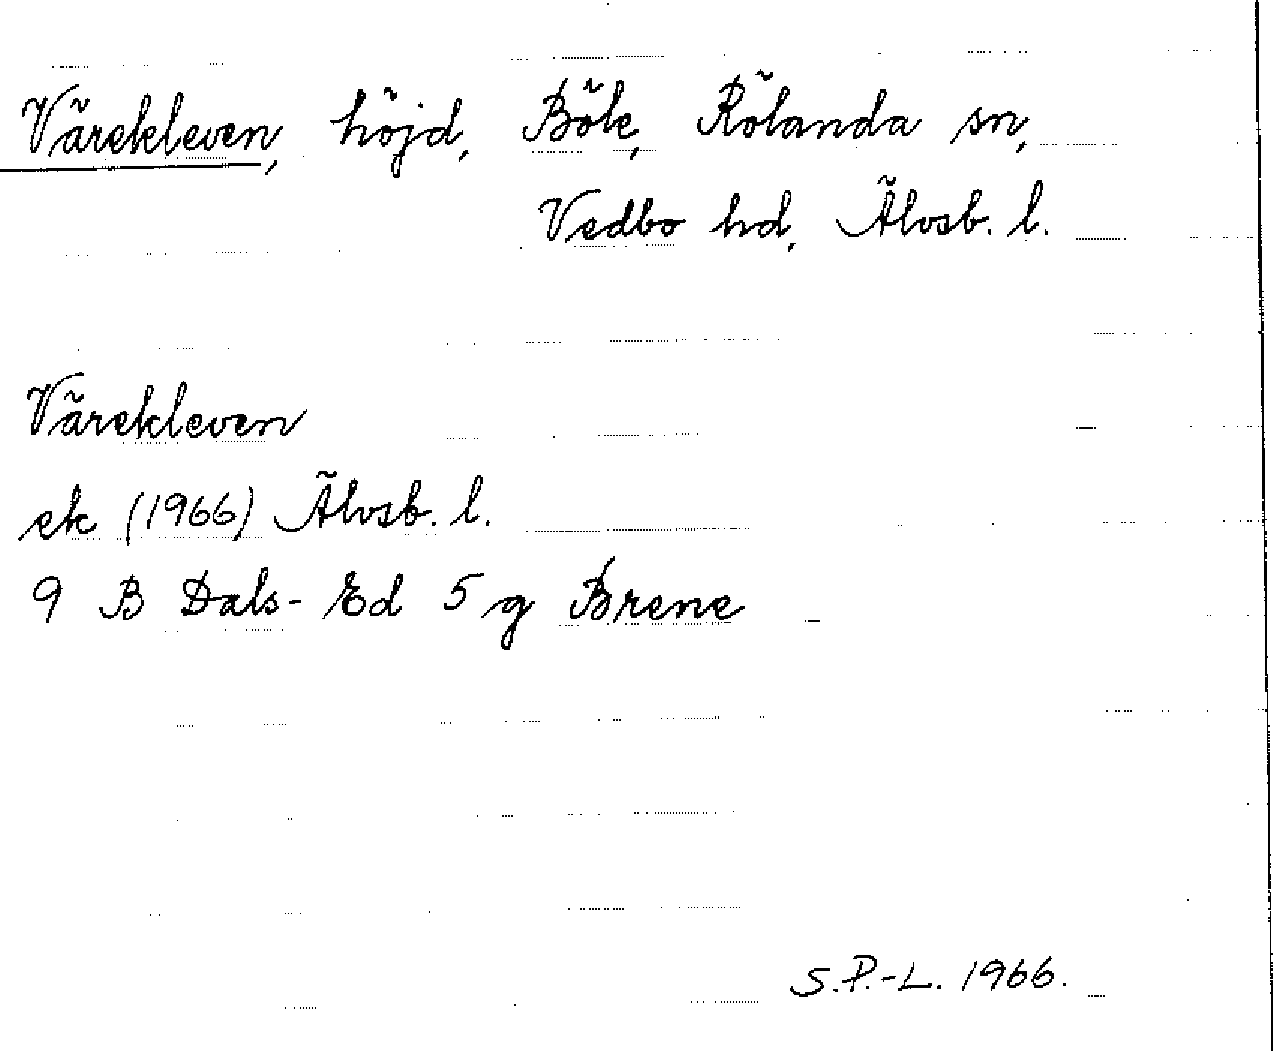 Värekleven, höjd, Böle, Rölanda sn,
Vedbo hd, Älvsb. l.
Värekleven
ek (1966) Älvsb. l.
9 B Dals-Ed 5 g Brene
S.P.-L. 1966.